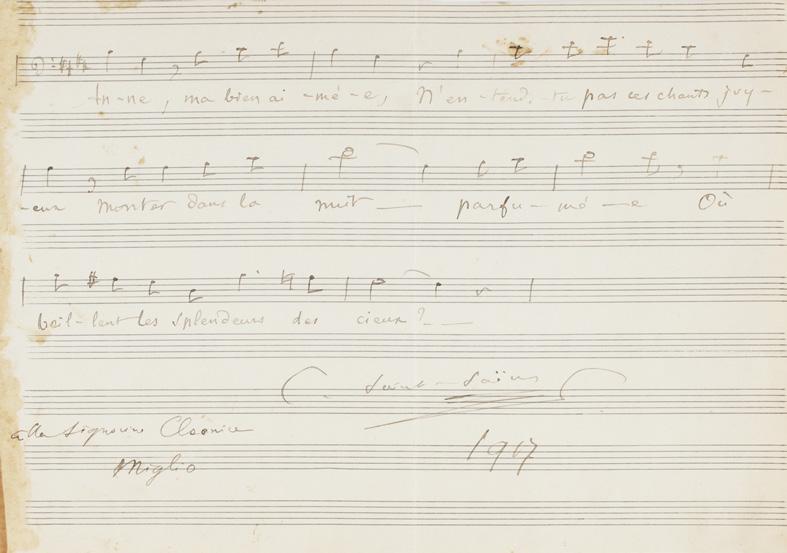 An-ne, ma bien ai-mé-e, N'en-tend-tu pas ces chants joy-
-eux Monter dans la nuit — parfu-mé-e Où
bril-lent les splendeurs des cieux? —
C. Saint-Saëns
alla Signorina Cleonice
Miglio
1917